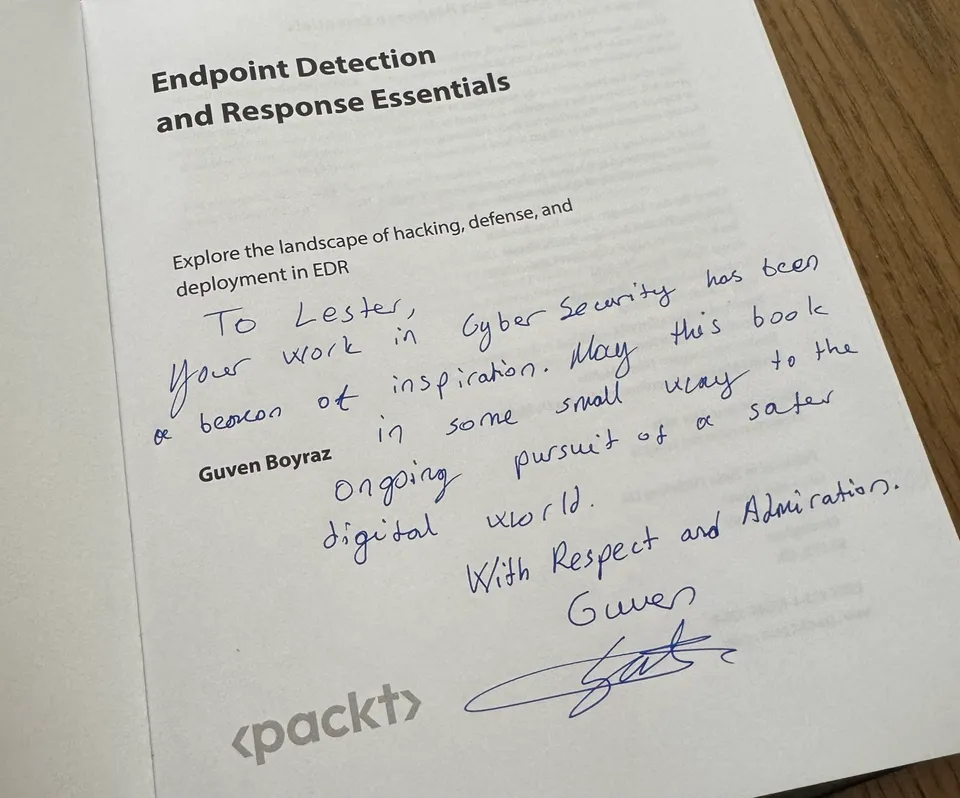 Endpoint Detection
and Response Essentials
Explore the landscape of hacking, defense, and
deployment in EDR
To Lester,
Your work in Cyber Security has been
a beacon of inspiration. May this book
in some small way to the
Guven Boyraz
ongoing pursuit of a safer
digital world.
With Respect and Admiration.
Guven
<packt>